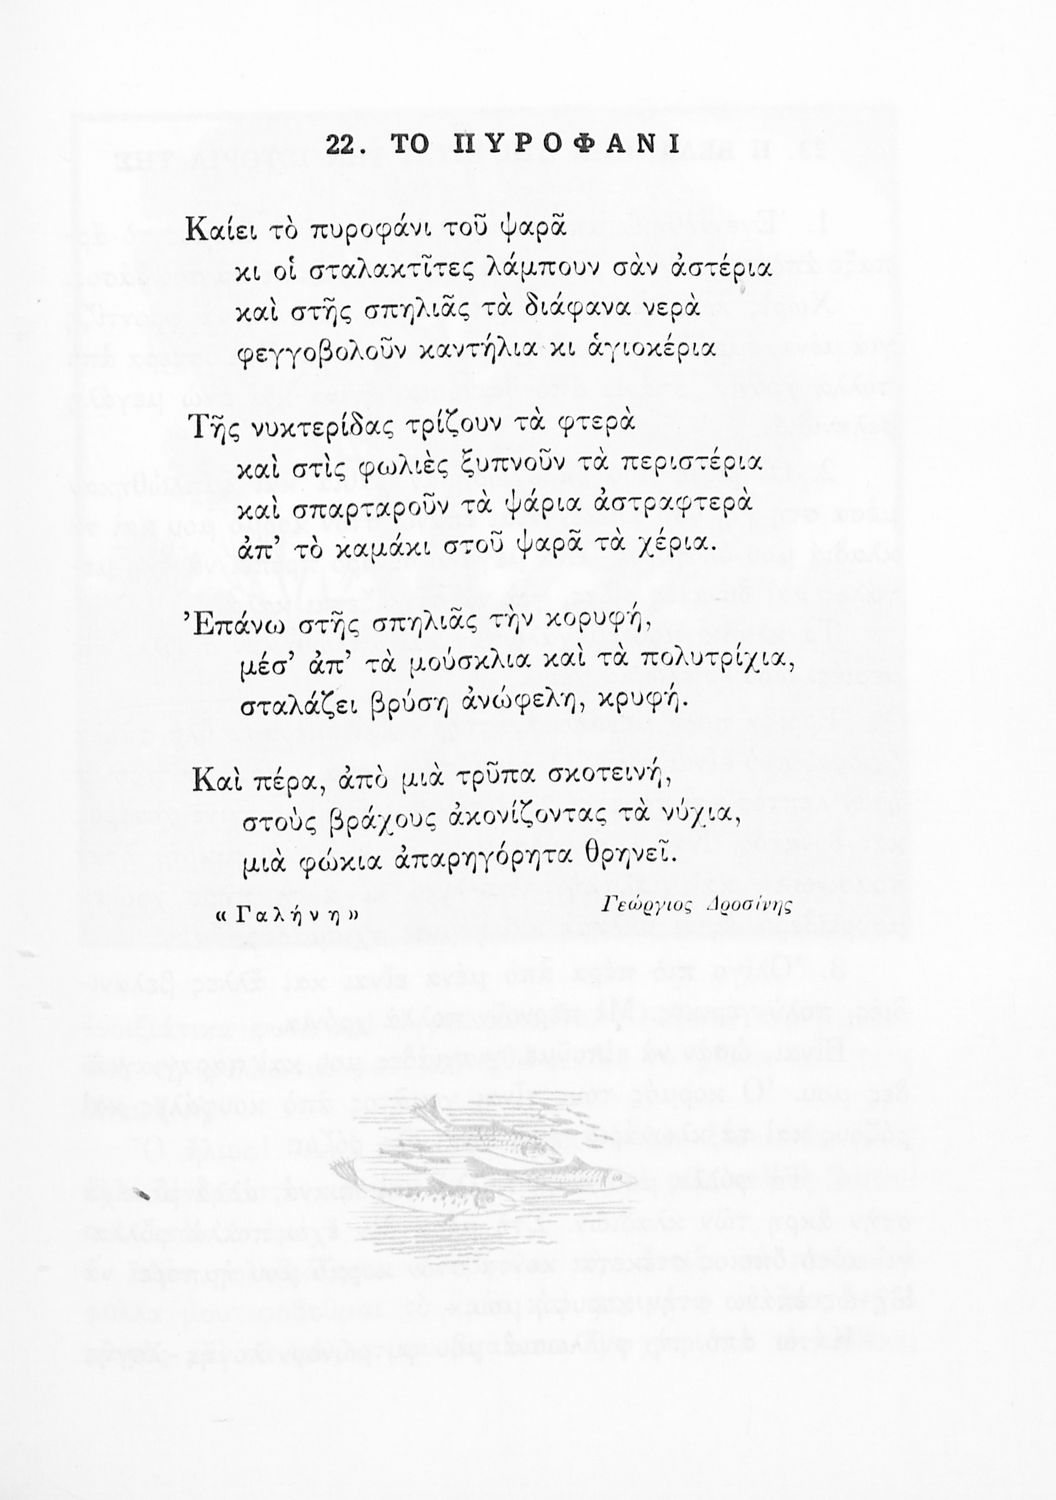 22. ΤΟ ΠΥΡΟΦΑΝΙ
Καίει τὸ πυροφάνι τοῦ ψαρᾶ
κι οἱ σταλακτῖτες λάμπουν σὰν ἀστέρια
καὶ στῆς σπηλιᾶς τὰ διάφανα νερὰ
φεγγοβολοῦν καντήλια κι ἁγιοκέρια
Τῆς νυκτερίδας τρίζουν τὰ φτερὰ
καὶ στὶς φωλιὲς ξυπνοῦν τὰ περιστέρια
καὶ σπαρταροῦν τὰ ψάρια ἀστραφτερὰ
ἀπ’ τὸ καμάκι στοῦ ψαρᾶ τὰ χέρια.
Ἐπάνω στῆς σπηλιᾶς τὴν κορυφή,
μέσ’ ἀπ’ τὰ μούσκλια καὶ τὰ πολυτρίχια,
σταλάζει βρύση ἀνώφελη, κρυφή.
Καὶ πέρα, ἀπὸ μιὰ τρῦπα σκοτεινή,
στοὺς βράχους ἀκονίζοντας τὰ νύχια,
μιὰ φώκια ἀπαρηγόρητα θρηνεῖ.
«Γαλήνη» Γεώργιος Δροσίνης